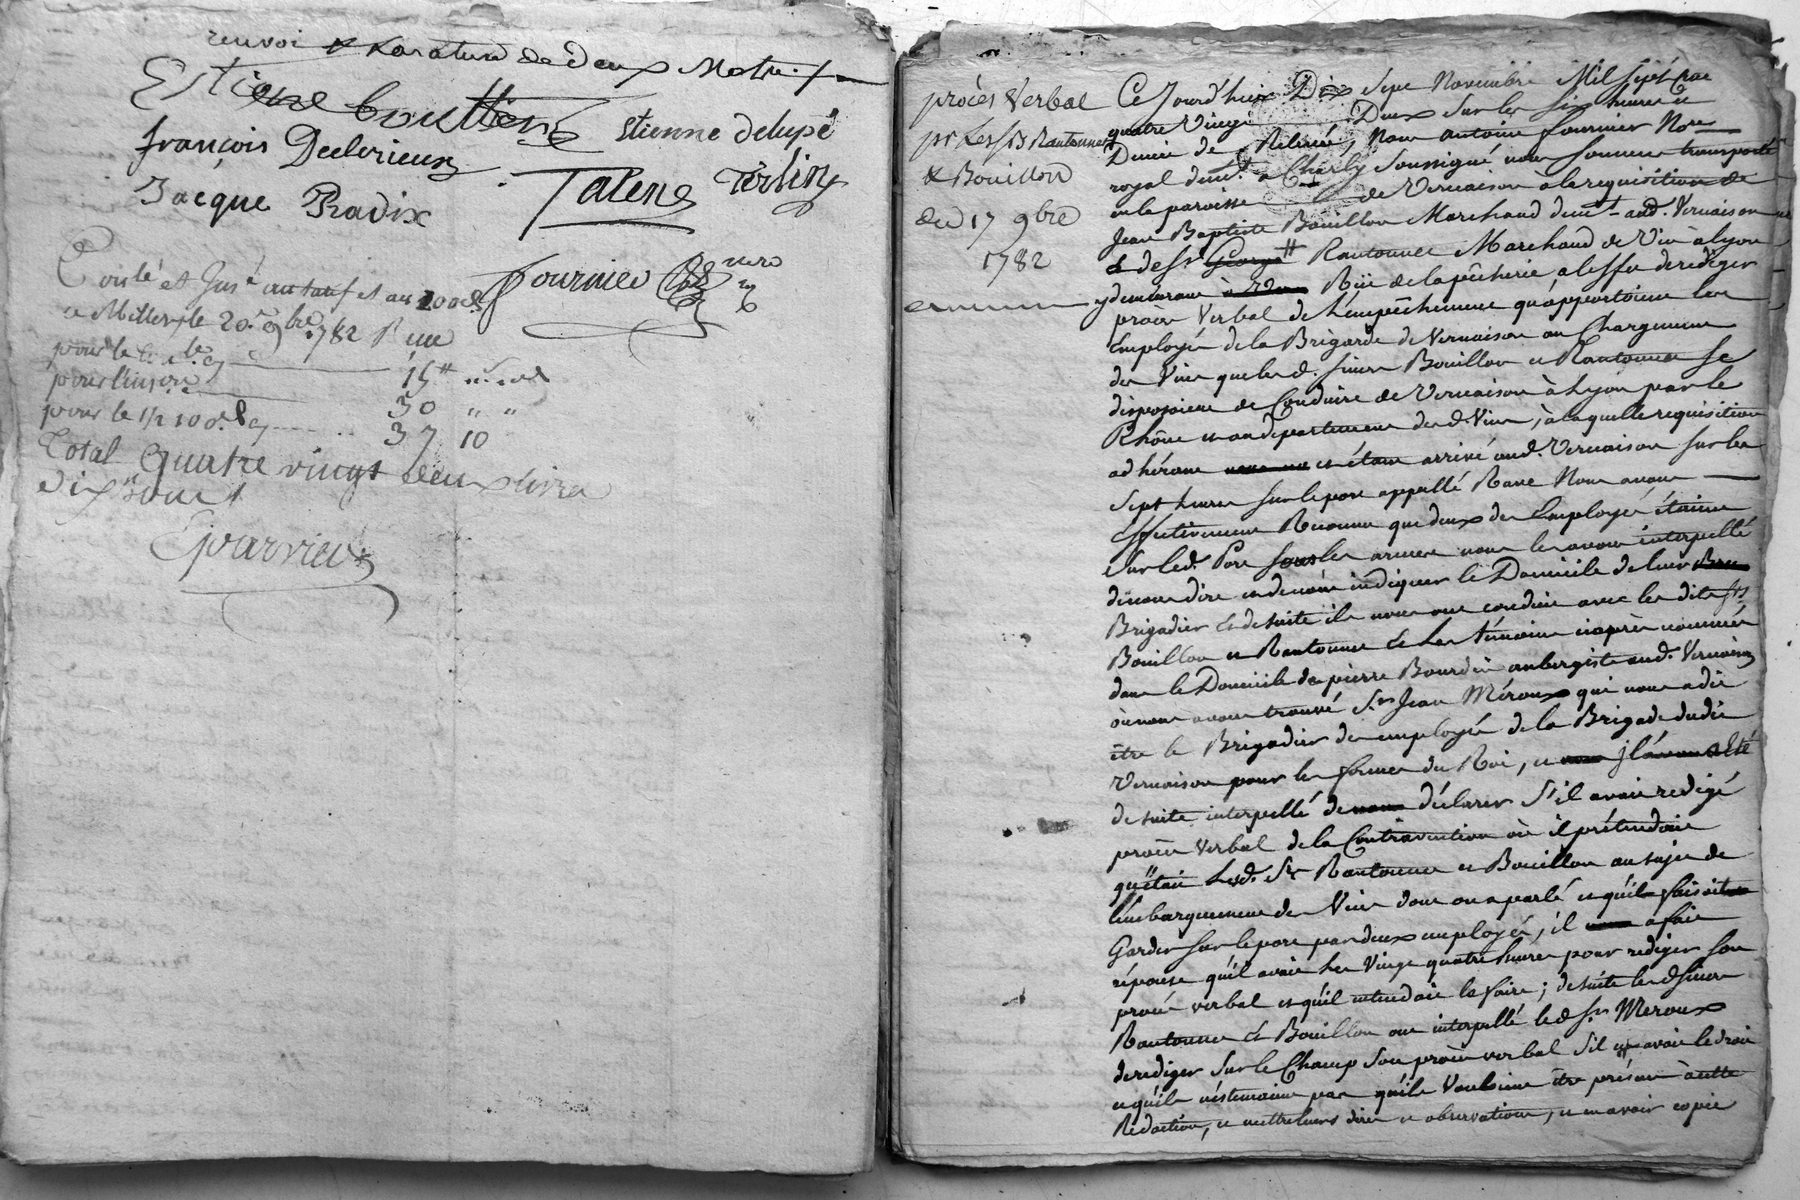 renvoi & la rature de deux Mots ./.
Estiene Couttiere
Estienne Delupé
françois Declerieux
Jacque Pradix
Talene
Terlin
fournier nore
Conlé et Insé au tarif et au 100e
a Millery le 20e 9bre 1782 Reçu
pour le conle
15# " "
pour l'insné
30 " "
pour le 1/2 100e
37 10
Total quatre vingt deux livres
dix sous
Eparvier
procès Verbal
pr Les Srs Rantonnet
& Bouillon
du 17 9bre
1782
Ce Jourd'huix Dix Sept Novembre Mil Sept cent
quatre Vingt Deux Sur les Six heures &
Demie de Relevée, Nous antoine fournier Nore
royal demt à Charly Soussigné nous sommes transporté
en la paroisse de Vernaison à la requisition de
Jean Baptiste Bouillon Marchand demt aud. Vernaison
& de Sr George # Rantonnet Marchand de Vin à Lyon
y demeurant à Lyon Rüe de la pêcherie a l'effet de rediger
procès Verbal de L'empêchement qu'apportoient les
Employés de la Brigade de Vernaison au Chargement
des Vins que les d. sieurs Bouillon et Rantonnet se
disposoient de Conduire de Vernaison à Lyon par le
Rhône et au departement desd. Vins, à laquelle requisition
adhérant et étant arrivé aud. Vernaison sur les
Sept heures sur le port appellé Rave Nous avons
Effectivement Reconnu que deux des Employés étoient
sur led. Port sous les armes nous les avons interpellé
de nous dire et de nous indiquer le Domicile de leur
Brigadier et de suite ils nous ont conduit avec les dits Srs
Bouillon et Rantonnet et Les témoins ciaprès nommés
dans le Domicile de pierre Bourdin aubergiste aud. Vernaison
où nous avons trouvé Sr Jean Méroux qui nous a dit
être le Brigadier des employés de la Brigade dudit
Vernaison pour les fermes du Roi, et Il a été
de suite interpellé de déclarer S'il avoit redigé
procès Verbal de la Contravention où il prétendoit
qu'étoit Lesd. Srs Rantonnet et Bouillon au sujet de
l'embarquement des Vins dont on a parlé et qu'il faisoit
Garder sur le port par deux employés, il a fait
réponse qu'il avoit Les Vingt quatre heures pour rediger son
procès verbal et qu'il entendoit le faire; de suite les d sieurs
Rantonnet et Bouillon ont interpellé led Sr Meroux
de rediger sur le Champ Son procès verbal S'il en avoit le droit
et qu'ils n'estimoient pas qu'ils Vouloient être présents à cette
Rédaction, et mettre leurs dires et observations, et en avoir copie